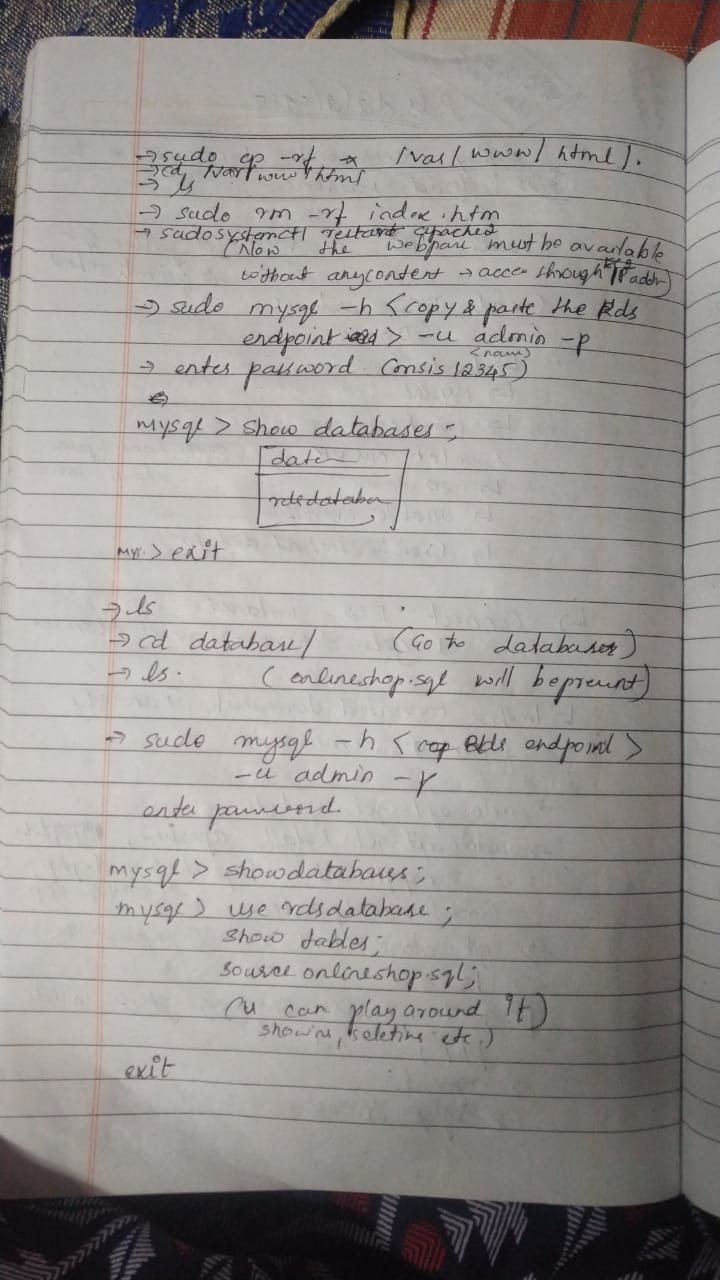 → sudo cp -rf * /var/www/html/.
→ cd /var/www/html
→ ls
→ sudo rm -rf index.htm
→ sudo systemctl restart apache2
(Now the webpage must be available
without any content → access through IP addr)
→ sudo mysql -h < copy & paste the Rds
endpoint > -u admin -p
(name)
→ enter password (msis 12345)
mysql > show databases;
data
rdsdataba
> exit
→ ls
→ cd database/ (Go to databases)
→ ls. (onlineshop.sql will be present)
→ sudo mysql -h < Rds endpoint >
-u admin -p
enter password.
mysql > show databases;
mysql > use rdsdatabase;
show tables;
source onlineshop.sql;
(u can play around it)
etc.)
exit